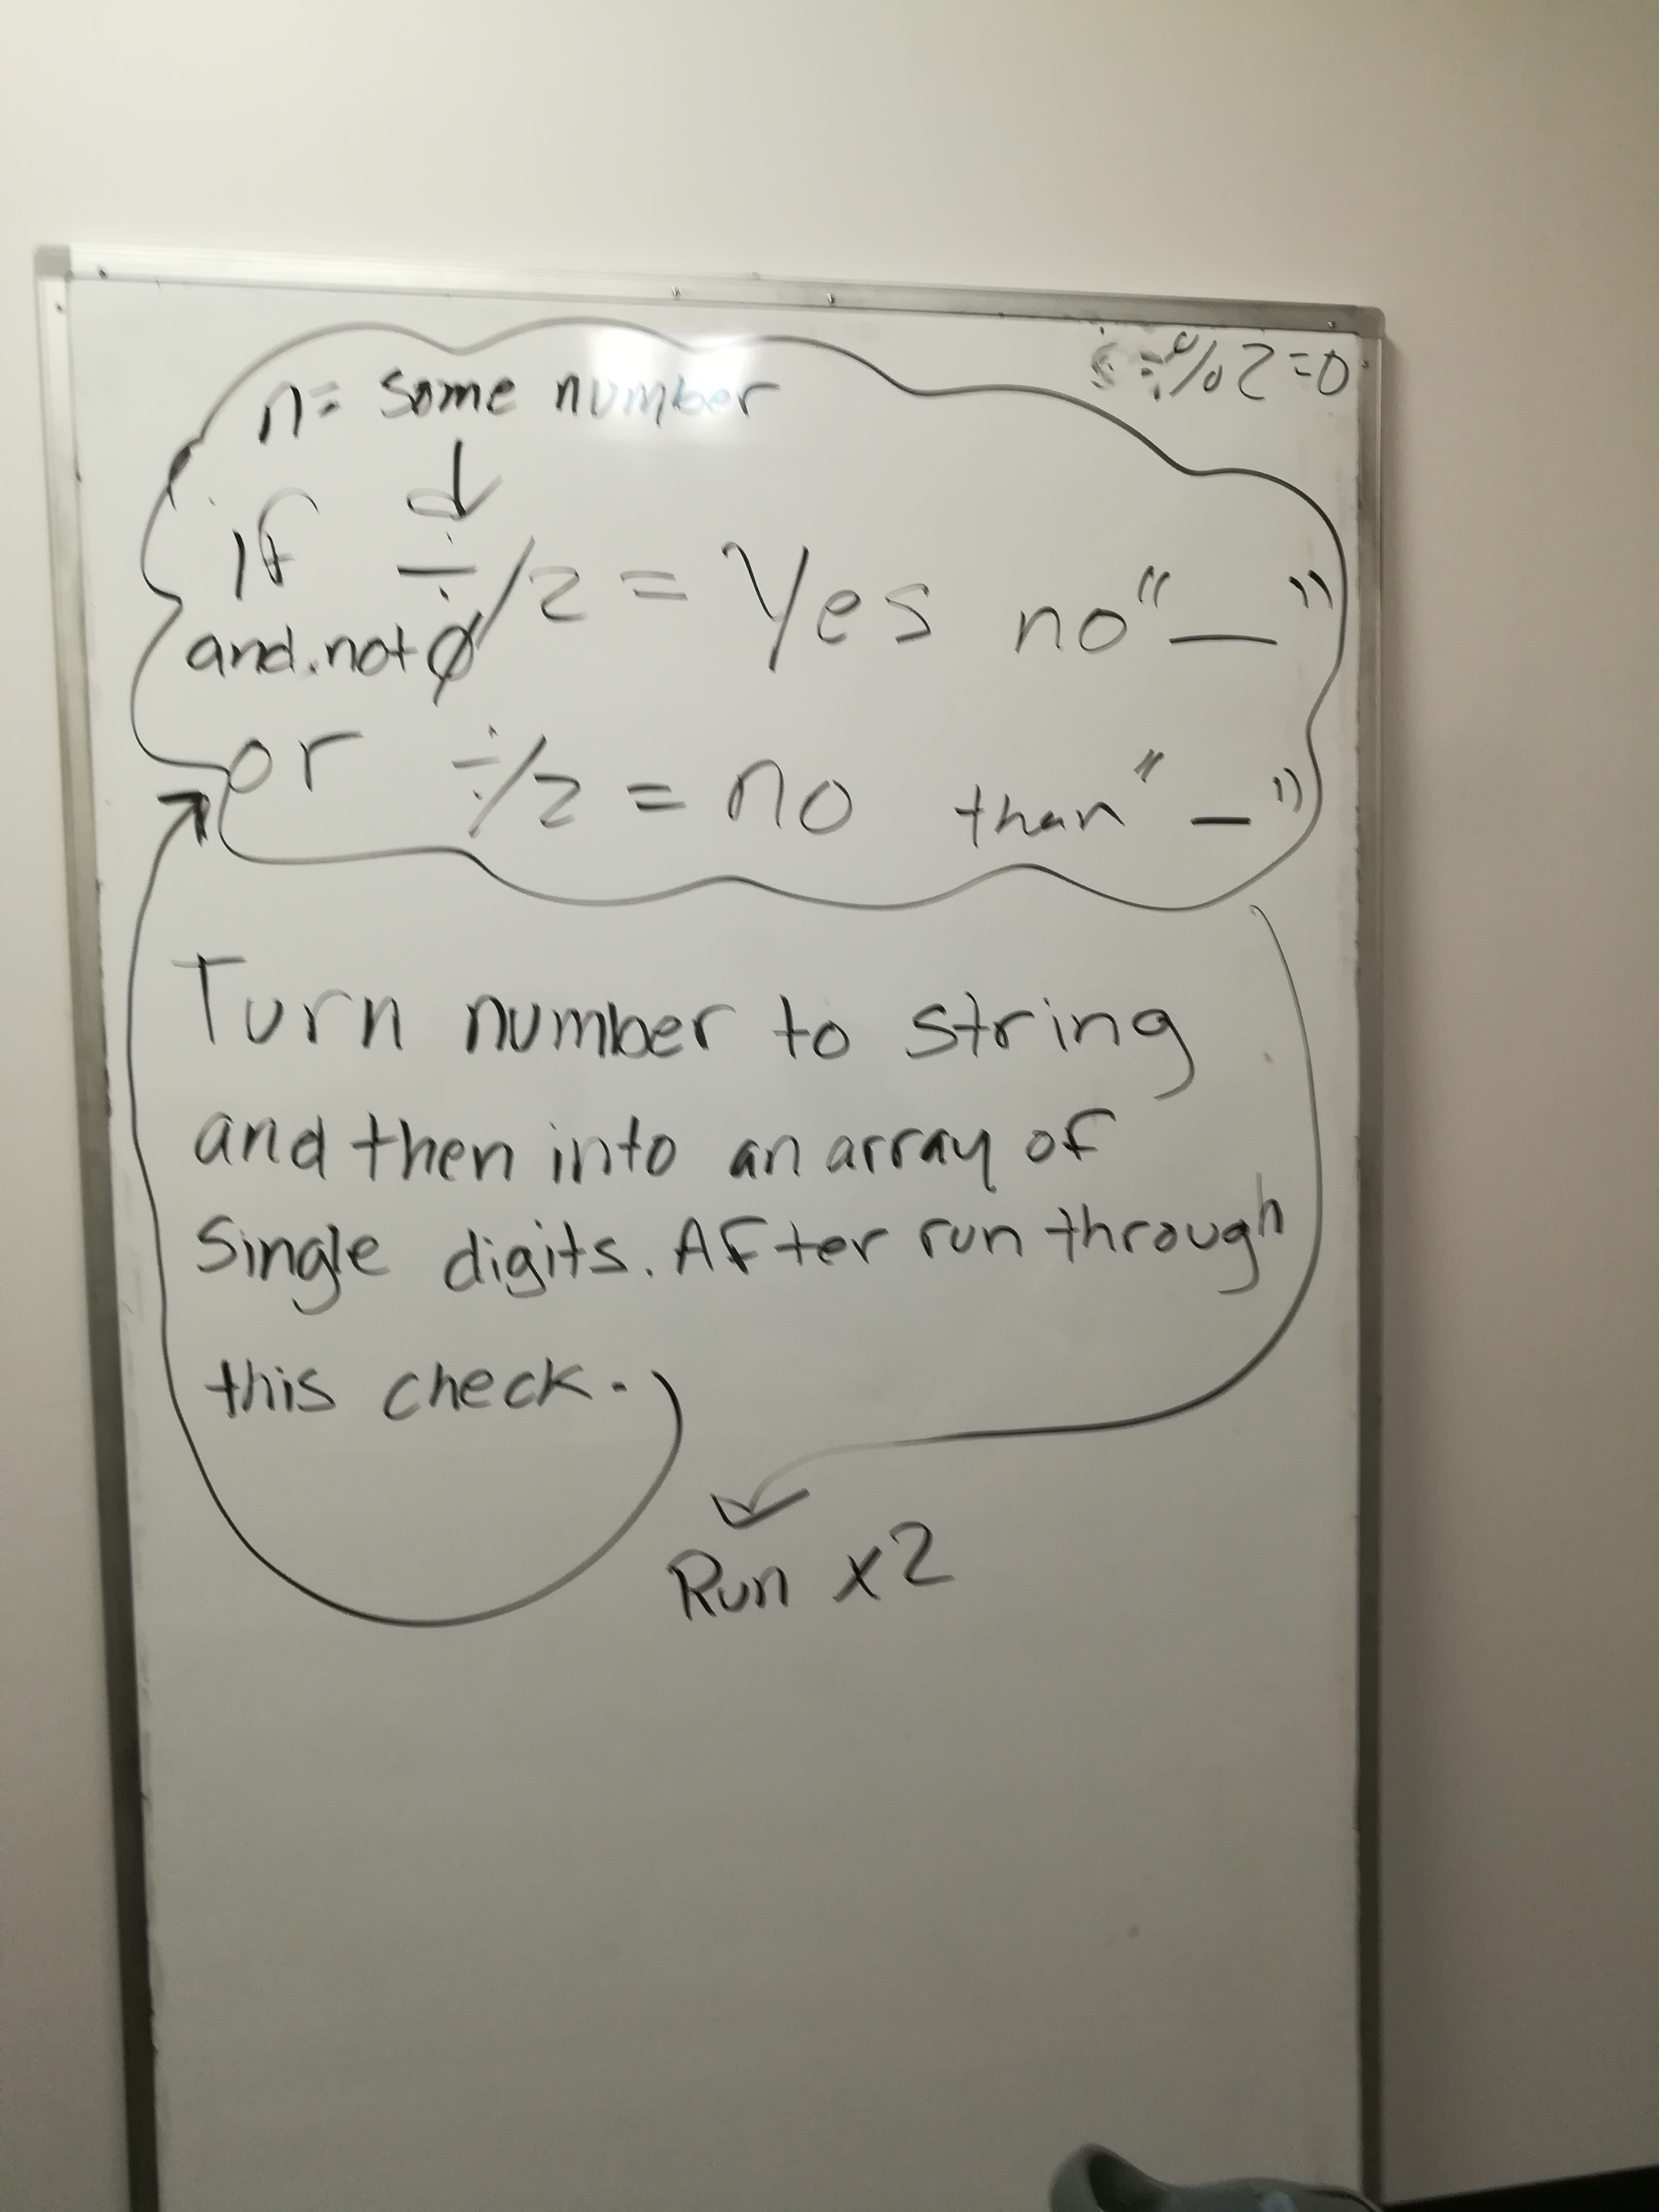 n= some number
%2=0
if ÷/2 = Yes no "—"
and.not Ø
or ÷/2 = no than "—"
Turn number to string
and then into an array of
single digits. After run through
this check.
Run x2